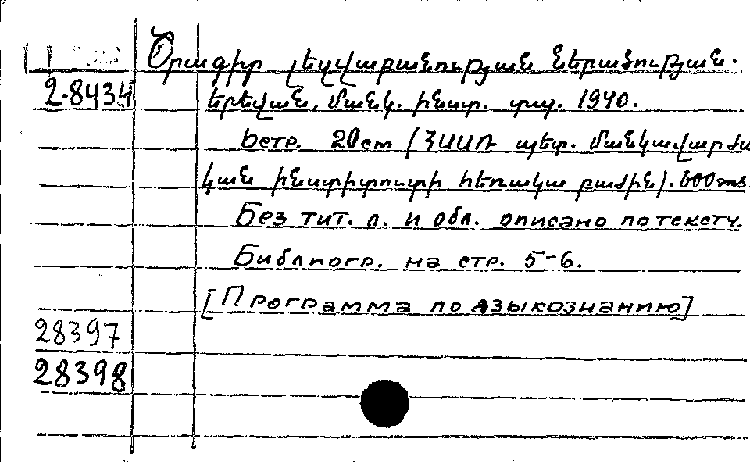 Ծրագիր լեզվաբանության ներածության.
2-8434
Երեվան, մանկ. ինստ. տպ. 1940.
6стр. 20см (ՀՍՍՌ պետ. մանկավարժա
կան ինստիտուտի հեռակա բաժին). 600
Без тит. л. и обл. описано по тексту.
Библиогр. на стр. 5-6.
[Программа по языкознанию]
28397
28398